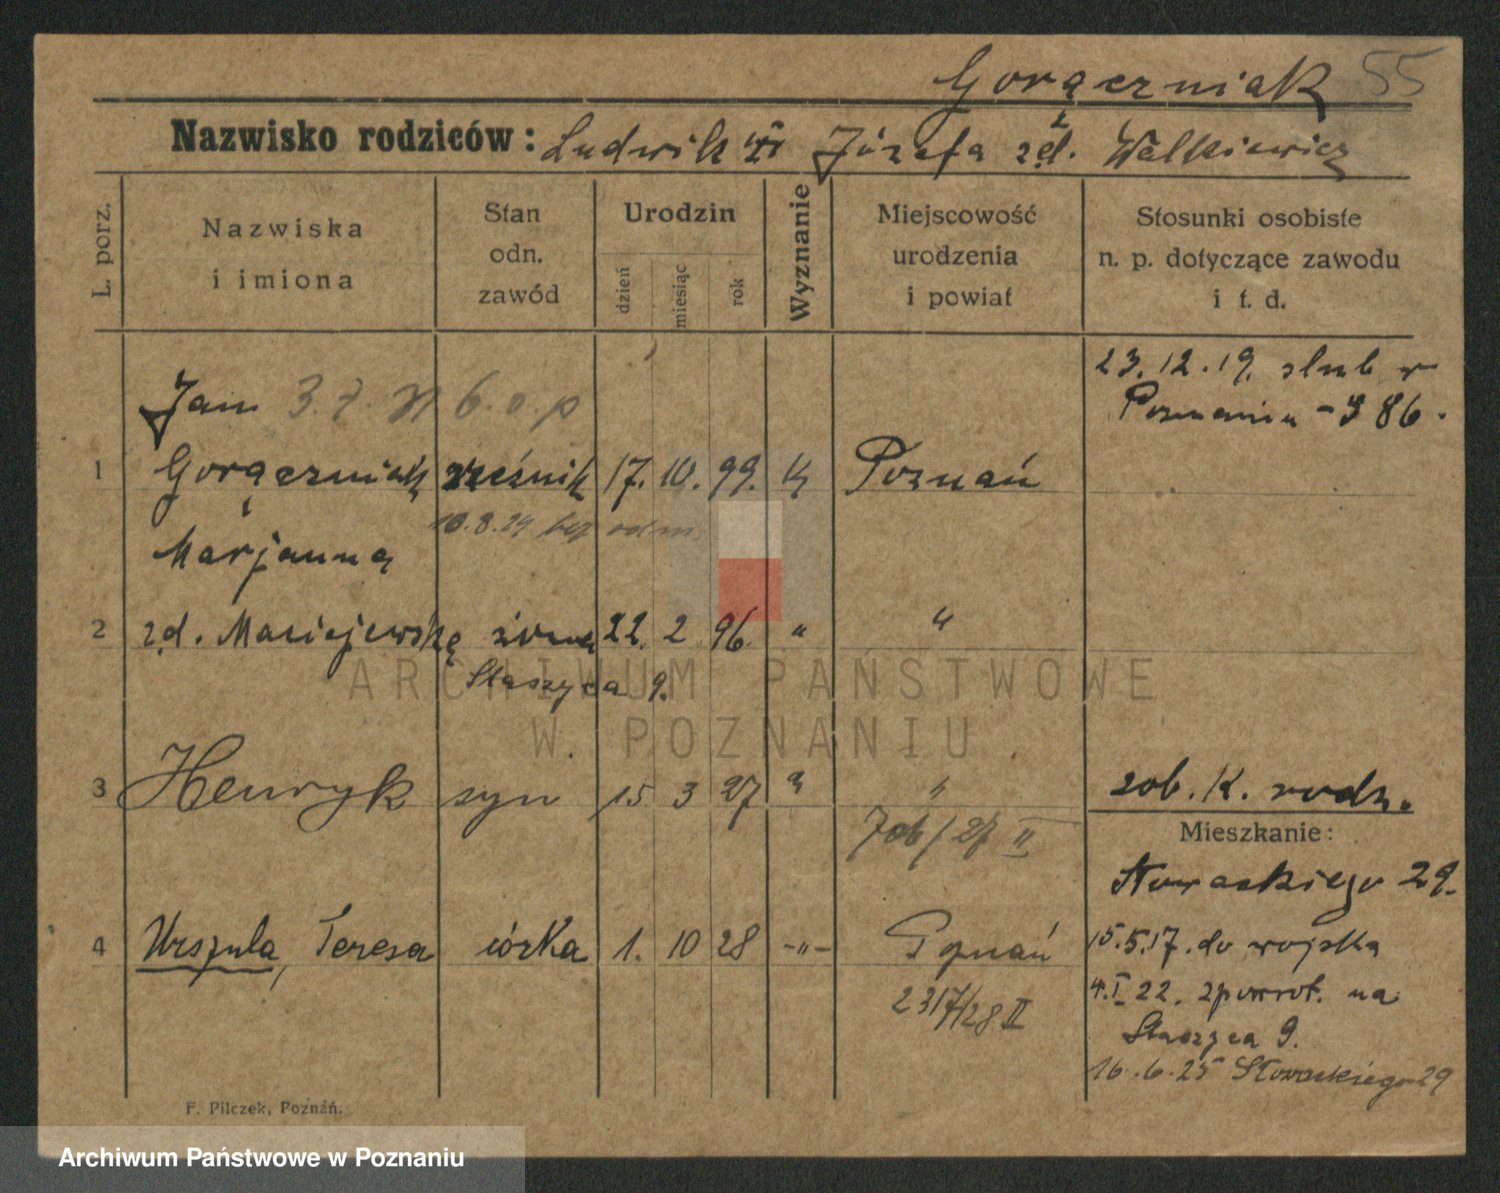 Gorączniak 55
Nazwisko rodziców: Ludwik i Józefa zd. Walkiewicz
L. porz.
Nazwiska
i imiona
Stan
odn.
zawód
Urodzin
dzień
miesiąc
rok
Wyznanie
Miejscowość
urodzenia
i powiat
Stosunki osobiste
n. p. dotyczące zawodu
i t. d.
23.12.19. ślub w
Poznaniu - 386.
Jan
1 Gorączniak rzeźnik 17. 10. 99. k Poznań
10.8.24 bez odm.
Marjanna
2 zd. Maciejewska żona 22. 2 96. " "
Staszyca 9.
3 Henryk syn 15 3 27 " "
zob. K. rodz.
Mieszkanie:
Słowackiego 29.
4 Urszula, Teresa córka 1. 10 28 -"- Poznań
2317/28 II
15.5.17. do wojska
4.I 22. zpowrot. na
Staszyca 9.
16.6.25 Słowackiego 29
F. Pilczek, Poznań.
ARCHIWUM PAŃSTWOWE
W POZNANIU
Archiwum Państwowe w Poznaniu